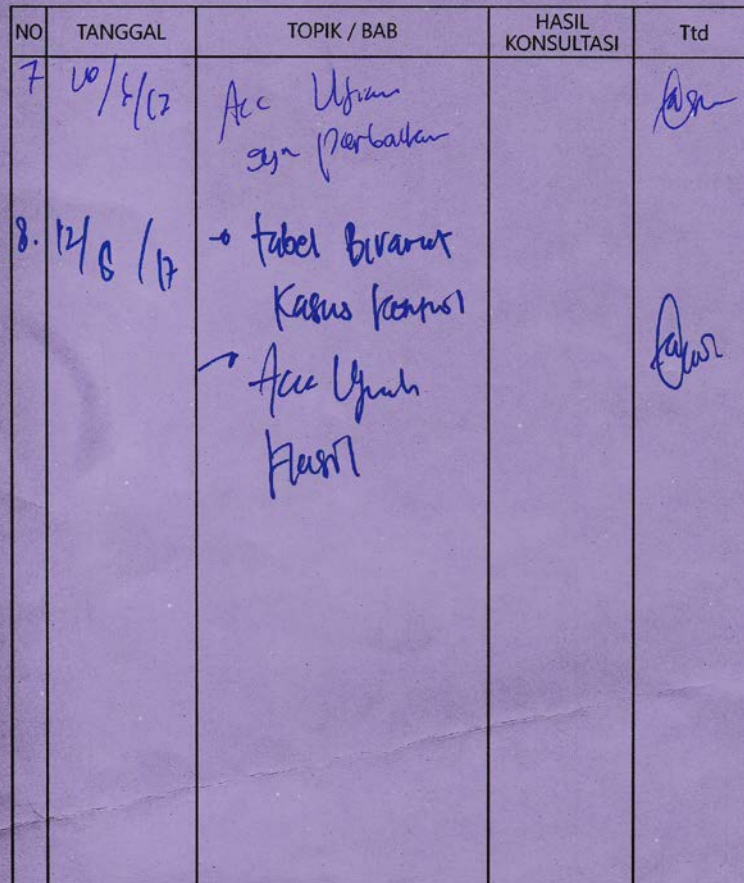 NO TANGGAL TOPIK / BAB HASIL KONSULTASI Ttd
7 Acc Ujian
perbaikan
8. 12/6/17 → tabel Bivariat
Kasus kontrol
→ Acc Ujian
Hasil